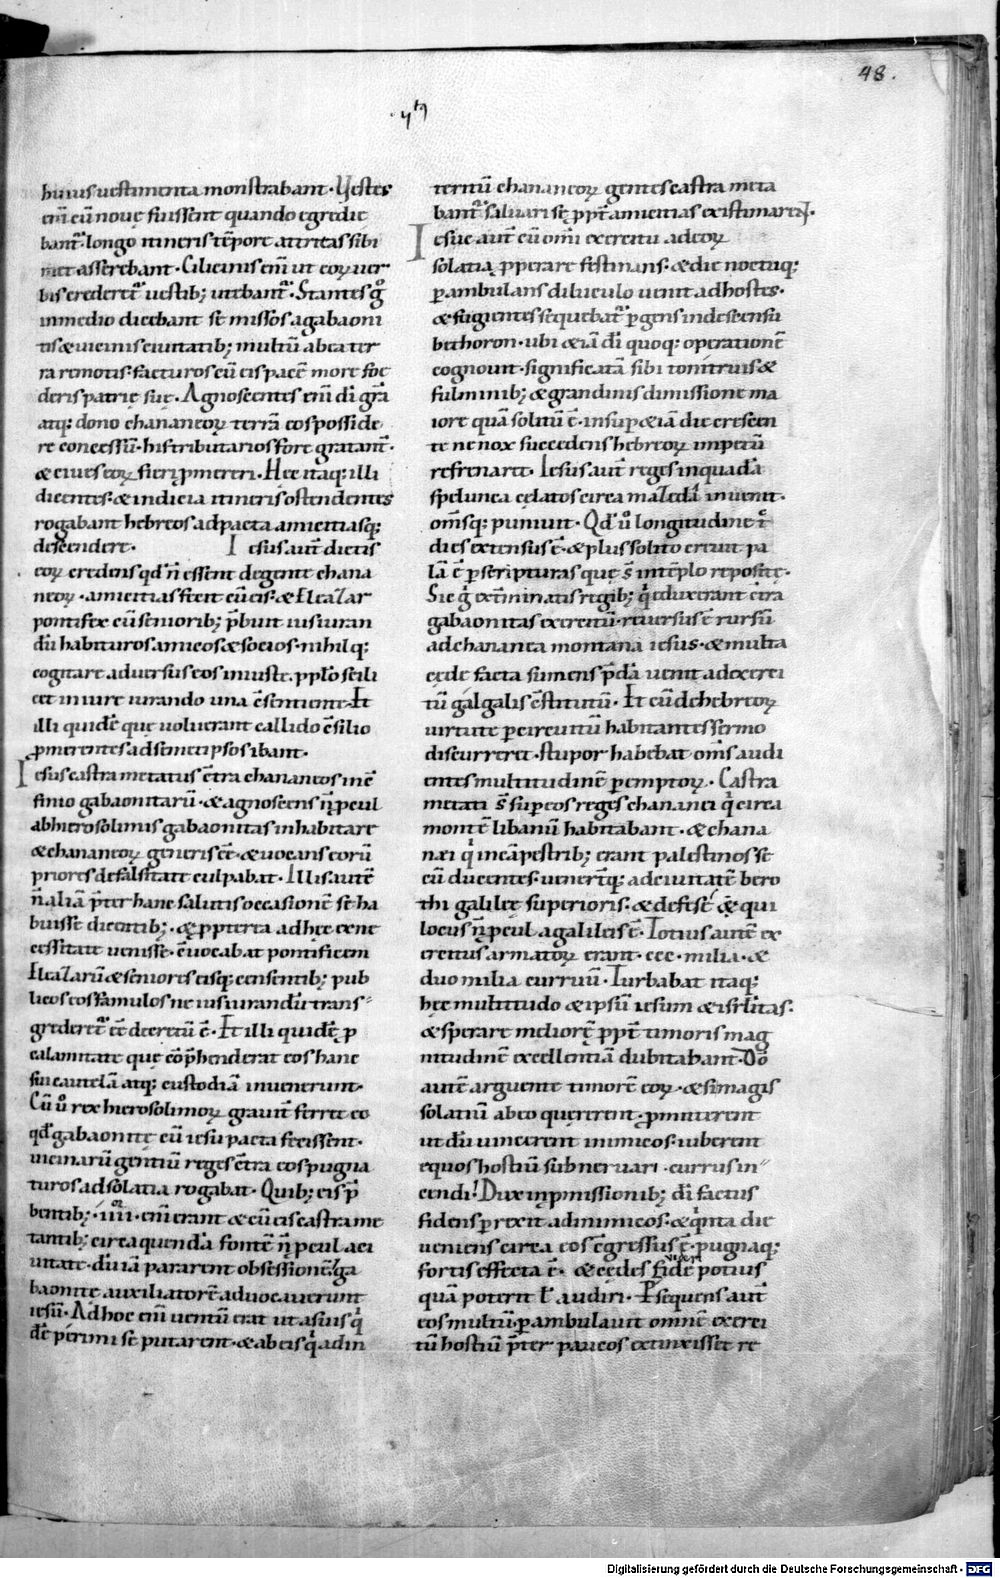 48.
huius uestimenta monstrabant. Vestes
eni᷒ cū nouę fuissent quando egredie
bant᷑ longo itineris tēpore attritas sibi
met asserebant. Cilicinis eni᷒ ut eoꝝ uer
bis crederet᷑ uestib; utebant᷑. Stantes gͦ
in medio dicebant se missos a gabaoni
tis & uicinis ciuitatib; multū ab ea ter
ra remotis. facturos cū eis pacē more foe
deris patrię suę. Agnoscentes eni᷒ dī grā
atq; dono chananeoꝝ terrā eos posside
re concessū. his tributarios fore gratant᷑.
& ciues eoꝝ fieri ꝓmereri. Hęc itaq; illi
dicentes. & indicia itineris ostendentes
rogabant hebreos ad pacta amicitiasq;
descendere. Iesus aut̄ dictis
eoꝝ credens qd̄ n̄ essent de gente chana
neoꝝ. amicitias fecit cū eis. & Eleazar
pontifex cū seniorib; p̄buit iusiuran
dū habituros amicos & socios. nihilq;
cogitare aduersus eos iniuste. pplo scili
cet in iure iurando una c̄sentiente. Et
illi quidē que uoluerant callido c̄silio
ꝓmerentes ad semetipsos ibant.
Iesus castra metatus c̄tra chananeos in c̄
finio gabaonitarū. & agnoscens n̄ ꝓcul
ab hierosolimis gabaonitas inhabitare
& chananeoꝝ generis eē. & uocans eorū
priores de falsitate culpabat. Illis autē
n̄ aliā p̄ter hanc salutis occasionē se ha
buisse dicentib;. & ꝓpterea ad hęc ex ne
cessitate uenisse. c̄uocabat pontificem
Eleazarū & seniores eisq; censentib; pub
licos eos famulos ne iusiurandū trans
grederet᷑ eē decretū ē. Et illi quidē ꝓ
calamitate que cōp̄henderat eos hanc
sui cautelā atq; custodiā inuenerunt.
Cū uͦ rex hierosolimoꝝ grauit̄ ferret eo
qd̄ gabaonitę cū iesu pacta fecissent.
uicinarū gentiū reges c̄tra eos pugna
turos ad solatia rogabat. Quib; eis p̄
bentib;. iiii. eni᷒ erant & cū eis castra me
tantib; circa quendā fontē n̄ ꝓcul a ci
uitate. dū iā pararent obsessionē. ga
baonitę auxiliatorē aduocauerunt
iesū. Ad hoc eni᷒ uentū erat ut a suis qͥ
dē perimi se putarent. & ab eis qͥ ad in
ternitū chananeoꝝ gentes castra meta
bant᷑ saluari sę ꝓpt̄ amicitias existimarent.
Iesue aut̄ cū omi exercitu ad eoꝝ
solatia ꝓperare festinans. & die noctuq;
ꝑambulans diluculo uenit ad hostes.
& fugientes sequebat᷑ ꝑ gens in descensu
bethoron. ubi & iā dī quoq; operationē
cognouit. significatā sibi tonitruis &
fulminib; & grandinis dimissione ma
iore quā solitū ē. insuꝑ & iā die crescen
te ne nox succedens hebreoꝝ impetū
refrenaret. Iesus aut̄ reges in quadā
spelunca cęlatos circa mazedā inuenit.
omsq; puniuit. Qd̄ uͦ longitudine
dies extensus ē. & plus solito creuit pa
lā ē ꝑ scripturas quę s̄ in tēplo reposite.
Sic gͦ ext̄minatis regib; qͥ eduxerant c̄tra
gabaonitas exercitū. reuersus ē rursū
ad chananea montana iesus. & multa
cede facta sumens p̄dā uenit ad exerci
tū galgalis c̄stitutū. Et cū de hebreoꝝ
uirtute ꝑ circuitū habitantes sermo
discurreret. stupor habebat oms audi
entes multitudinē ꝑemptoꝝ. Castra
metati s̄ suꝑ eos reges chananei qͥ circa
montē libanū habitabant. & chana
nei qͥ in cāpestrib; erant palestinos se
cū ducentes. uenerūtq; ad ciuitatē bero
thi galilee superioris. & defese qui
locus n̄ ꝓcul a galileis ē. Totius autē ex
ercitus armatoꝝ erant. ccc. milia. &
duo milia curruū. Turbabat itaq;
hęc multitudo & ipsū iesum & isrlitas.
& sperare meliorē ꝓpt̄ timoris mag
nitudinē excellentiā dubitabant. Dō
autē arguente timorē eoꝝ. & si magis
solatiū ab eo quererent. ꝓmitterent
ut dū uincerent inimicos. iuberent
equos hostiū subneruari. currus in
cendi. Dux in ꝓmissionib; dī factus
fidens ꝑrexit ad inimicos. & qͥnta die
ueniens circa eos c̄gressus ē. pugnaq;
fortis effecta ē. & cędes fidē potius
quā poterit t̄ audiri. Ꝑsequens aut̄
eos multū ꝑambulauit omnē exerci
tū hostiū p̄ter paucos extinxisset re
Digitalisierung gefördert durch die Deutsche Forschungsgemeinschaft - DFG